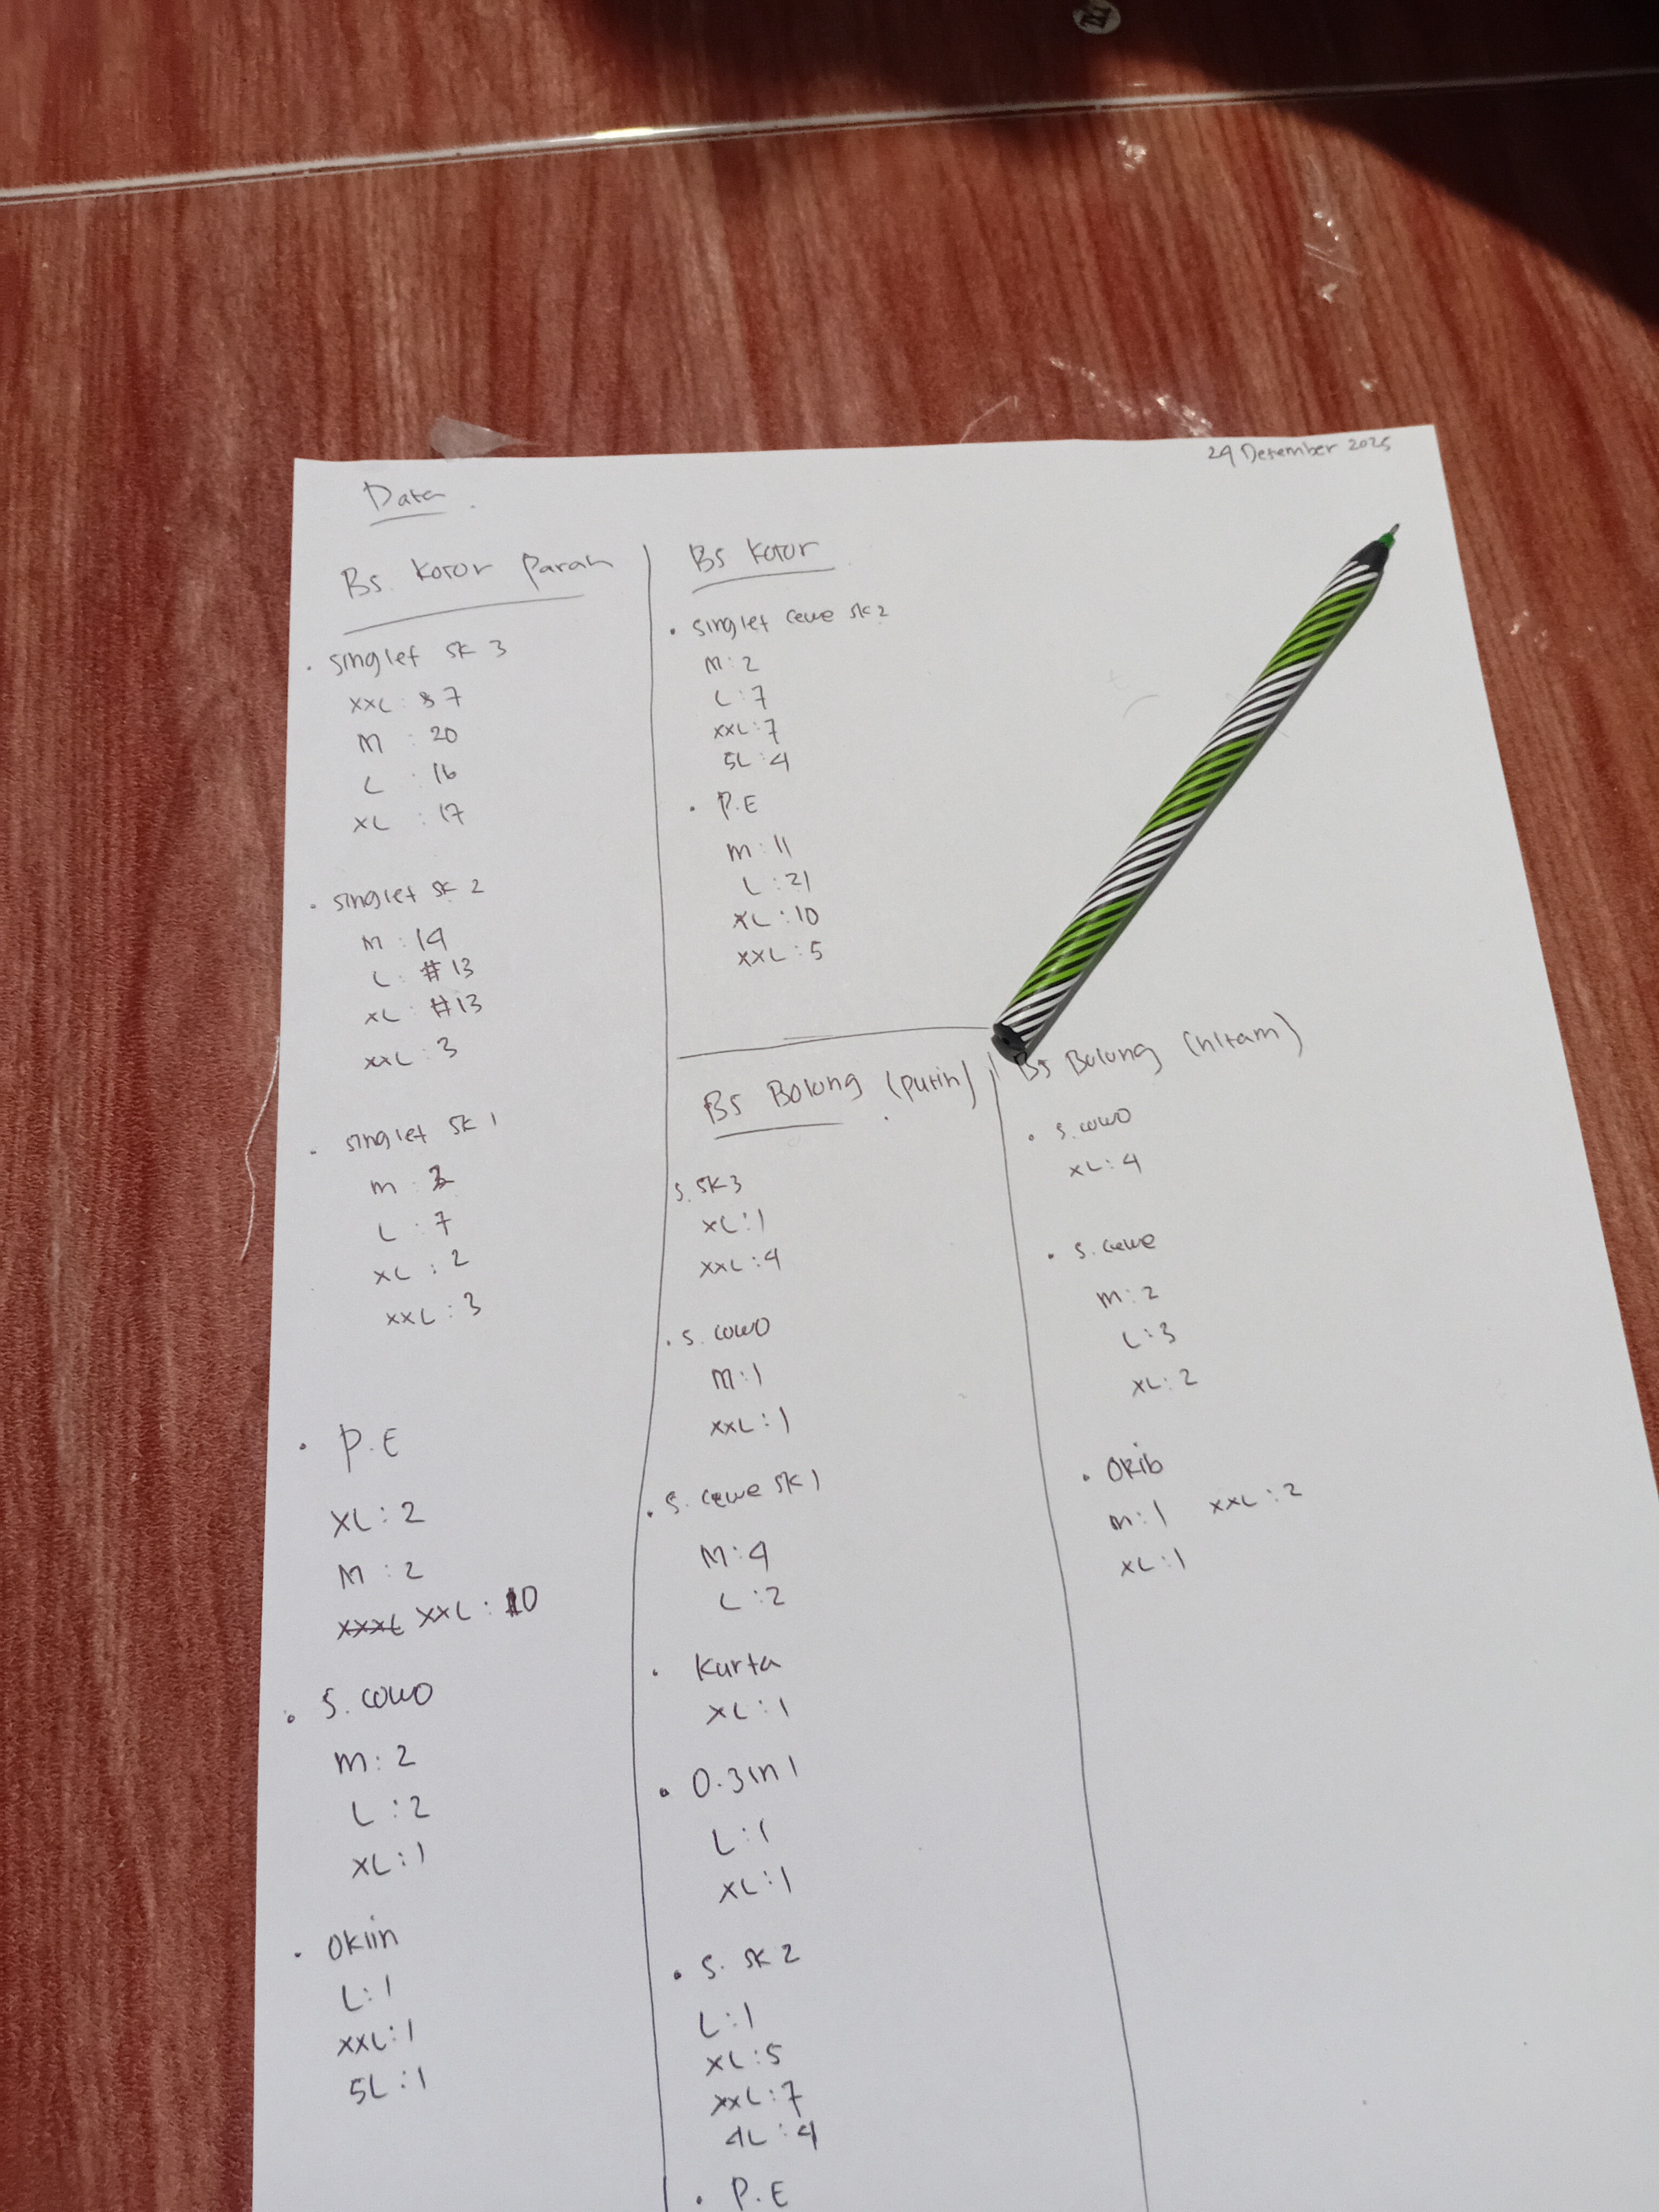 29 Desember 2025
Data
Bs. Kotor Parah
• singlet SK 3
XXL : 7
M : 20
L : 16
XL : 17
• singlet SK 2
M : 14
L : 13
XL : 13
XXL : 3
• singlet SK 1
M :
L : 7
XL : 2
XXL : 3
• P.E
XL : 2
M : 2
XXXL XXL : 10
• S. cowo
M : 2
L : 2
XL : 1
• Okiin
L : 1
XXL : 1
5L : 1
Bs Kotor
• singlet cewe SK 2
M : 2
L : 7
XXL : 7
5L : 4
• P.E
M : 11
L : 21
XL : 10
XXL : 5
Bs Bolong (putih)
S. SK3
XL : 1
XXL : 4
• S. cowo
M : 1
XXL : 1
• S. cewe SK 1
M : 4
L : 2
• Kurta
XL : 1
• O.3in1
L : 1
XL : 1
• S. SK 2
L : 1
XL : 5
XXL : 7
4L : 4
• P.E
Bs Bolong (hitam)
• S. cowo
XL : 4
• S. cewe
M : 2
L : 3
XL : 2
• Okib
M : 1 XXL : 2
XL : 1